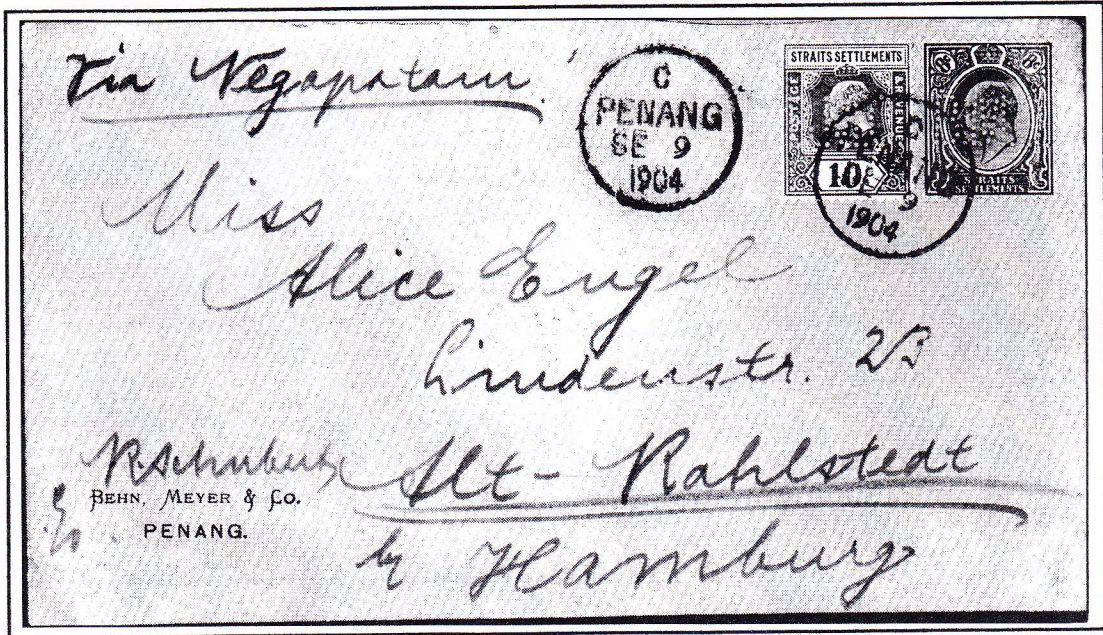 Via Negapatam
C
PENANG
SE 9
1904
STRAITS SETTLEMENTS
POSTAGE & REVENUE
10
8c 8c
STRAITS
SETTLEMENTS
9
1904
Miss
Alice Engel
Lindenstr. 23
Alt-Rahlstedt
by Hamburg
BEHN, MEYER & Co.
PENANG.